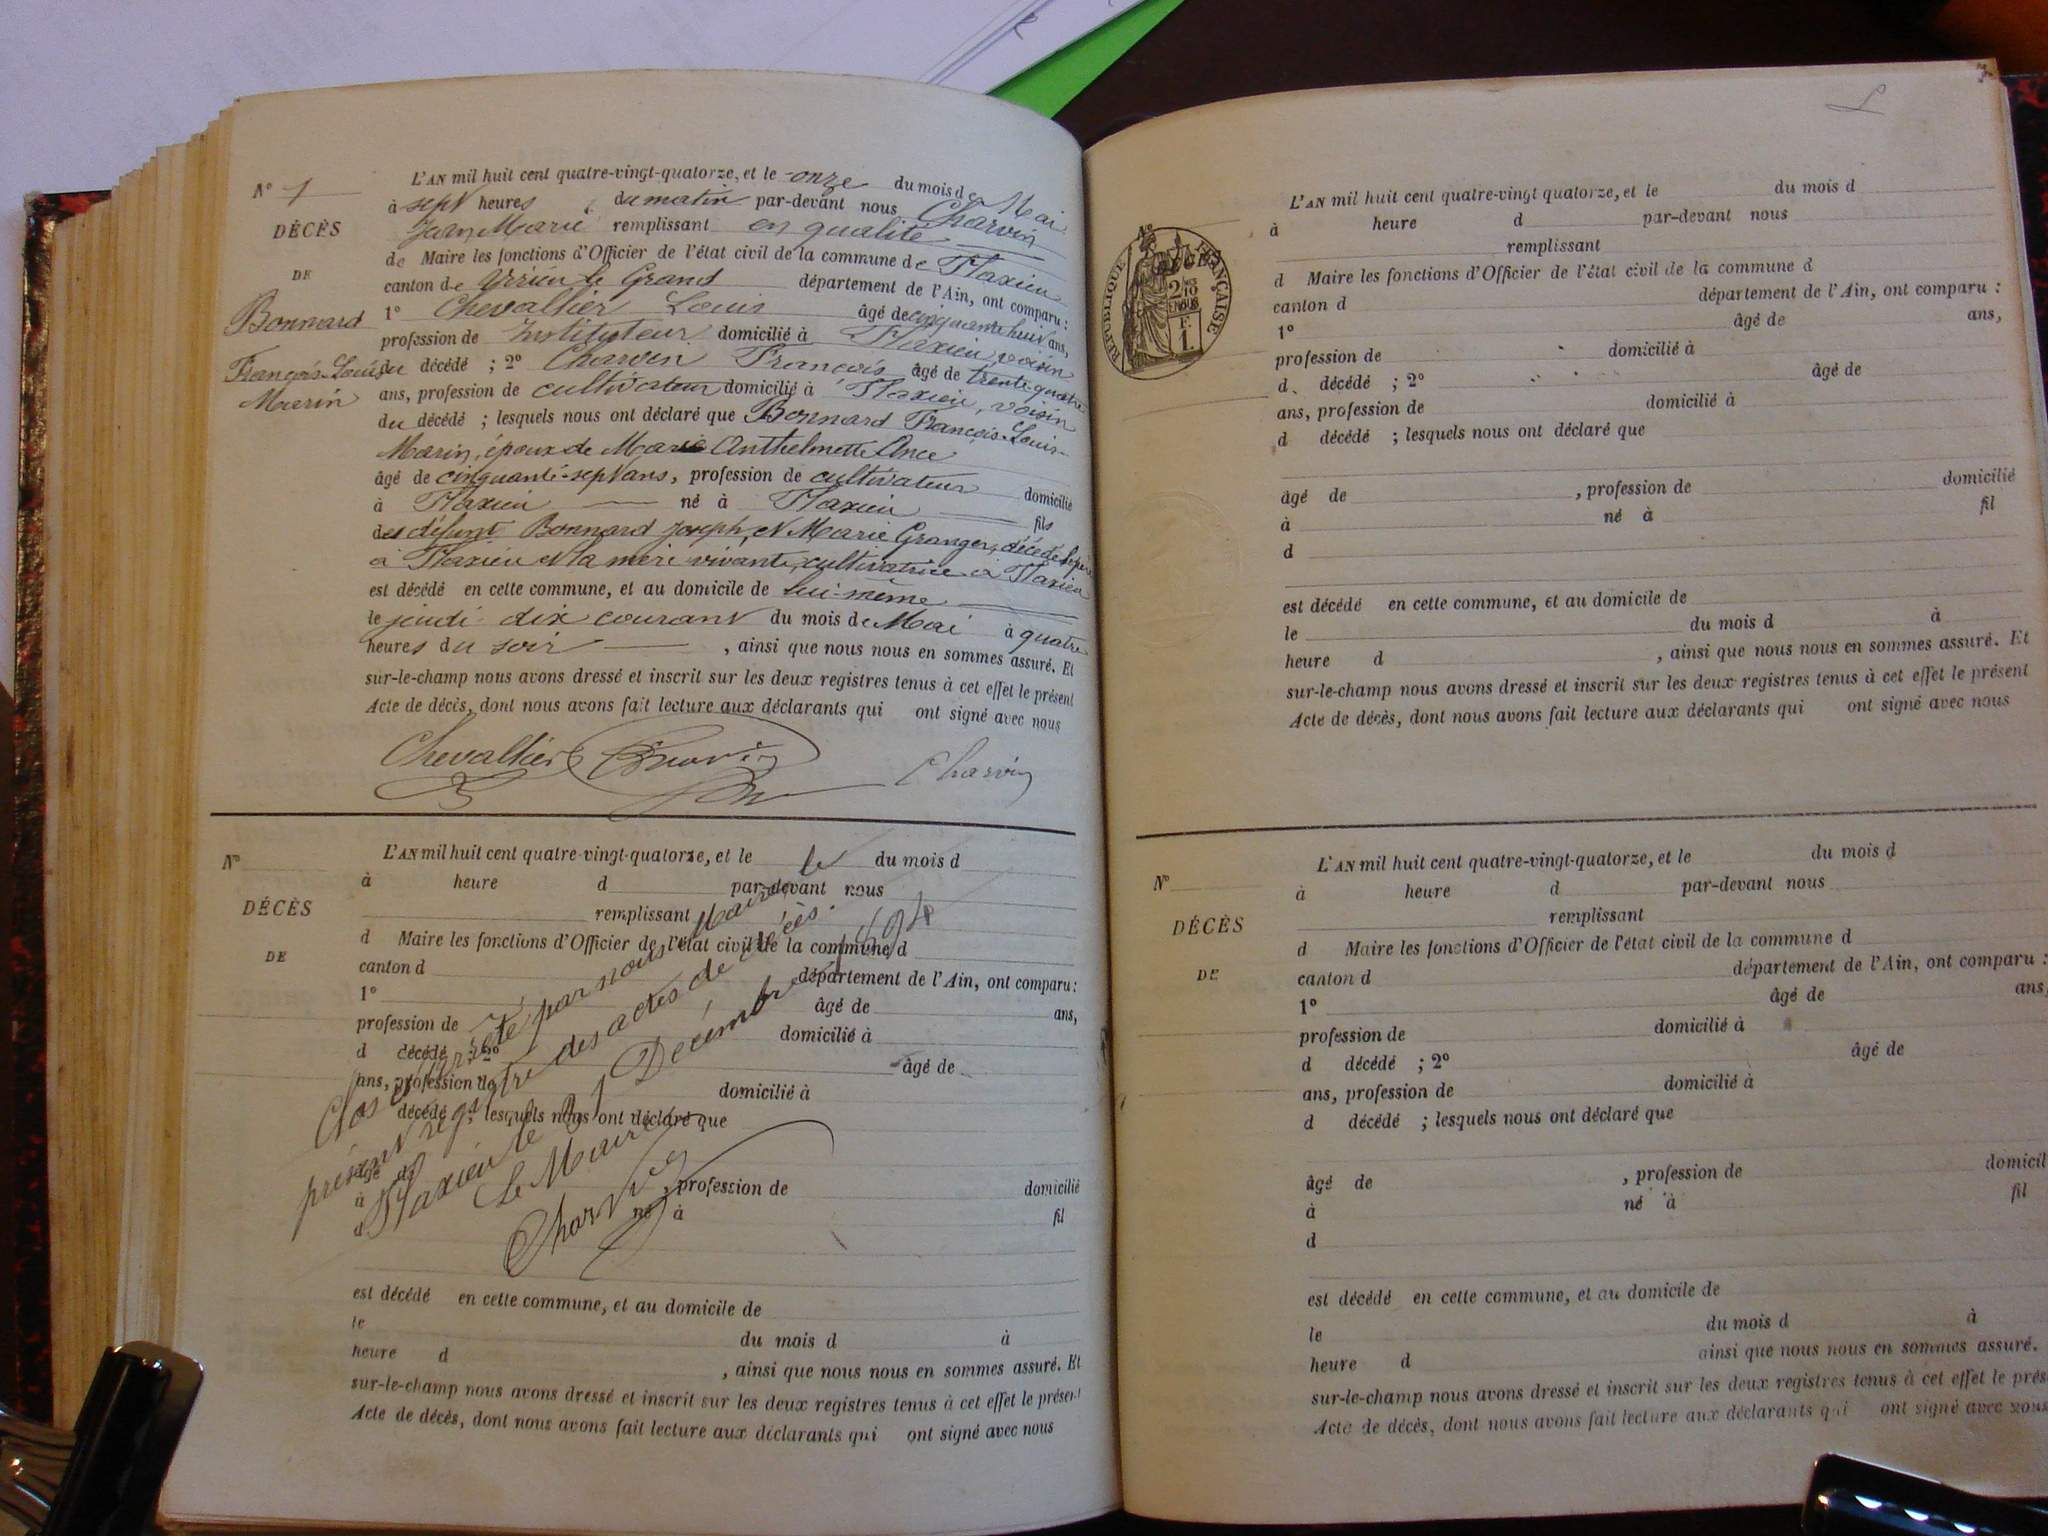 N° 7
DÉCÈS
DE
Bonnard
François-Louis
Marin
L'AN mil huit cent quatre-vingt-quatorze, et le onze du mois de Mai
à sept heures du matin par-devant nous Charvin
Jean Marie remplissant en qualité
de Maire les fonctions d'Officier de l'état civil de la commune de Flaxieu
canton de Virieu le Grand département de l'Ain, ont comparu :
1° Chevallier Louis âgé de cinquante huit ans,
profession de Instituteur domicilié à Flaxieu voisin
du décédé ; 2° Charvin François âgé de trente-quatre
ans, profession de cultivateur domicilié à Flaxieu, voisin
du décédé ; lesquels nous ont déclaré que Bonnard François-Louis-
Marin, époux de Marie Anthelmette Ance
âgé de cinquante-sept ans, profession de cultivateur domicilié
à Flaxieu né à Flaxieu fils
des défunt Bonnard Joseph, et Marie Granger, décédé le père
à Flaxieu et la mère vivante, cultivatrice à Flaxieu
est décédé en cette commune, et au domicile de lui-même
le jeudi dix courant du mois de Mai à quatre
heures du soir , ainsi que nous nous en sommes assuré. Et
sur-le-champ nous avons dressé et inscrit sur les deux registres tenus à cet effet le présent
Acte de décès, dont nous avons fait lecture aux déclarants qui ont signé avec nous
Chevallier Charvin Charvin
N°
DÉCÈS
DE
L'AN mil huit cent quatre-vingt-quatorze, et le du mois d
à heure d par-devant nous
remplissant
d Maire les fonctions d'Officier de l'état civil de la commune d
canton d département de l'Ain, ont comparu :
1° âgé de ans,
profession de domicilié à
d décédé ; 2° âgé de
ans, profession de domicilié à
d décédé ; lesquels nous ont déclaré que
âgé de , profession de domicilié
à né à fil
d
Clos et arrêté par nous Maire le
présent registre des actes de décès.
Flaxieu le 31 Décembre 1894
Le Maire
Charvin
est décédé en cette commune, et au domicile de
le du mois d à
heure d , ainsi que nous nous en sommes assuré. Et
sur-le-champ nous avons dressé et inscrit sur les deux registres tenus à cet effet le présent
Acte de décès, dont nous avons fait lecture aux déclarants qui ont signé avec nous
N°
RÉPUBLIQUE FRANÇAISE
L'AN mil huit cent quatre-vingt quatorze, et le du mois d
à heure d par-devant nous
remplissant
d Maire les fonctions d'Officier de l'état civil de la commune d
canton d département de l'Ain, ont comparu :
1° âgé de ans,
profession de domicilié à
d décédé ; 2° âgé de
ans, profession de domicilié à
d décédé ; lesquels nous ont déclaré que
âgé de , profession de domicilié
à né à fil
d
est décédé en cette commune, et au domicile de
le du mois d à
heure d , ainsi que nous nous en sommes assuré. Et
sur-le-champ nous avons dressé et inscrit sur les deux registres tenus à cet effet le présent
Acte de décès, dont nous avons fait lecture aux déclarants qui ont signé avec nous
N°
DÉCÈS
DE
L'AN mil huit cent quatre-vingt-quatorze, et le du mois d
à heure d par-devant nous
remplissant
d Maire les fonctions d'Officier de l'état civil de la commune d
canton d département de l'Ain, ont comparu :
1° âgé de ans,
profession de domicilié à
d décédé ; 2° âgé de
ans, profession de domicilié à
d décédé ; lesquels nous ont déclaré que
âgé de , profession de domicil
à né à fil
d
est décédé en cette commune, et au domicile de
le du mois d à
heure d ainsi que nous nous en sommes assuré.
sur-le-champ nous avons dressé et inscrit sur les deux registres tenus à cet effet le prés
Acte de décès, dont nous avons fait lecture aux déclarants qui ont signé avec nous